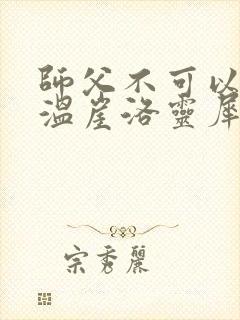 師父不可以
溫崖洛靈犀
宗秀麗